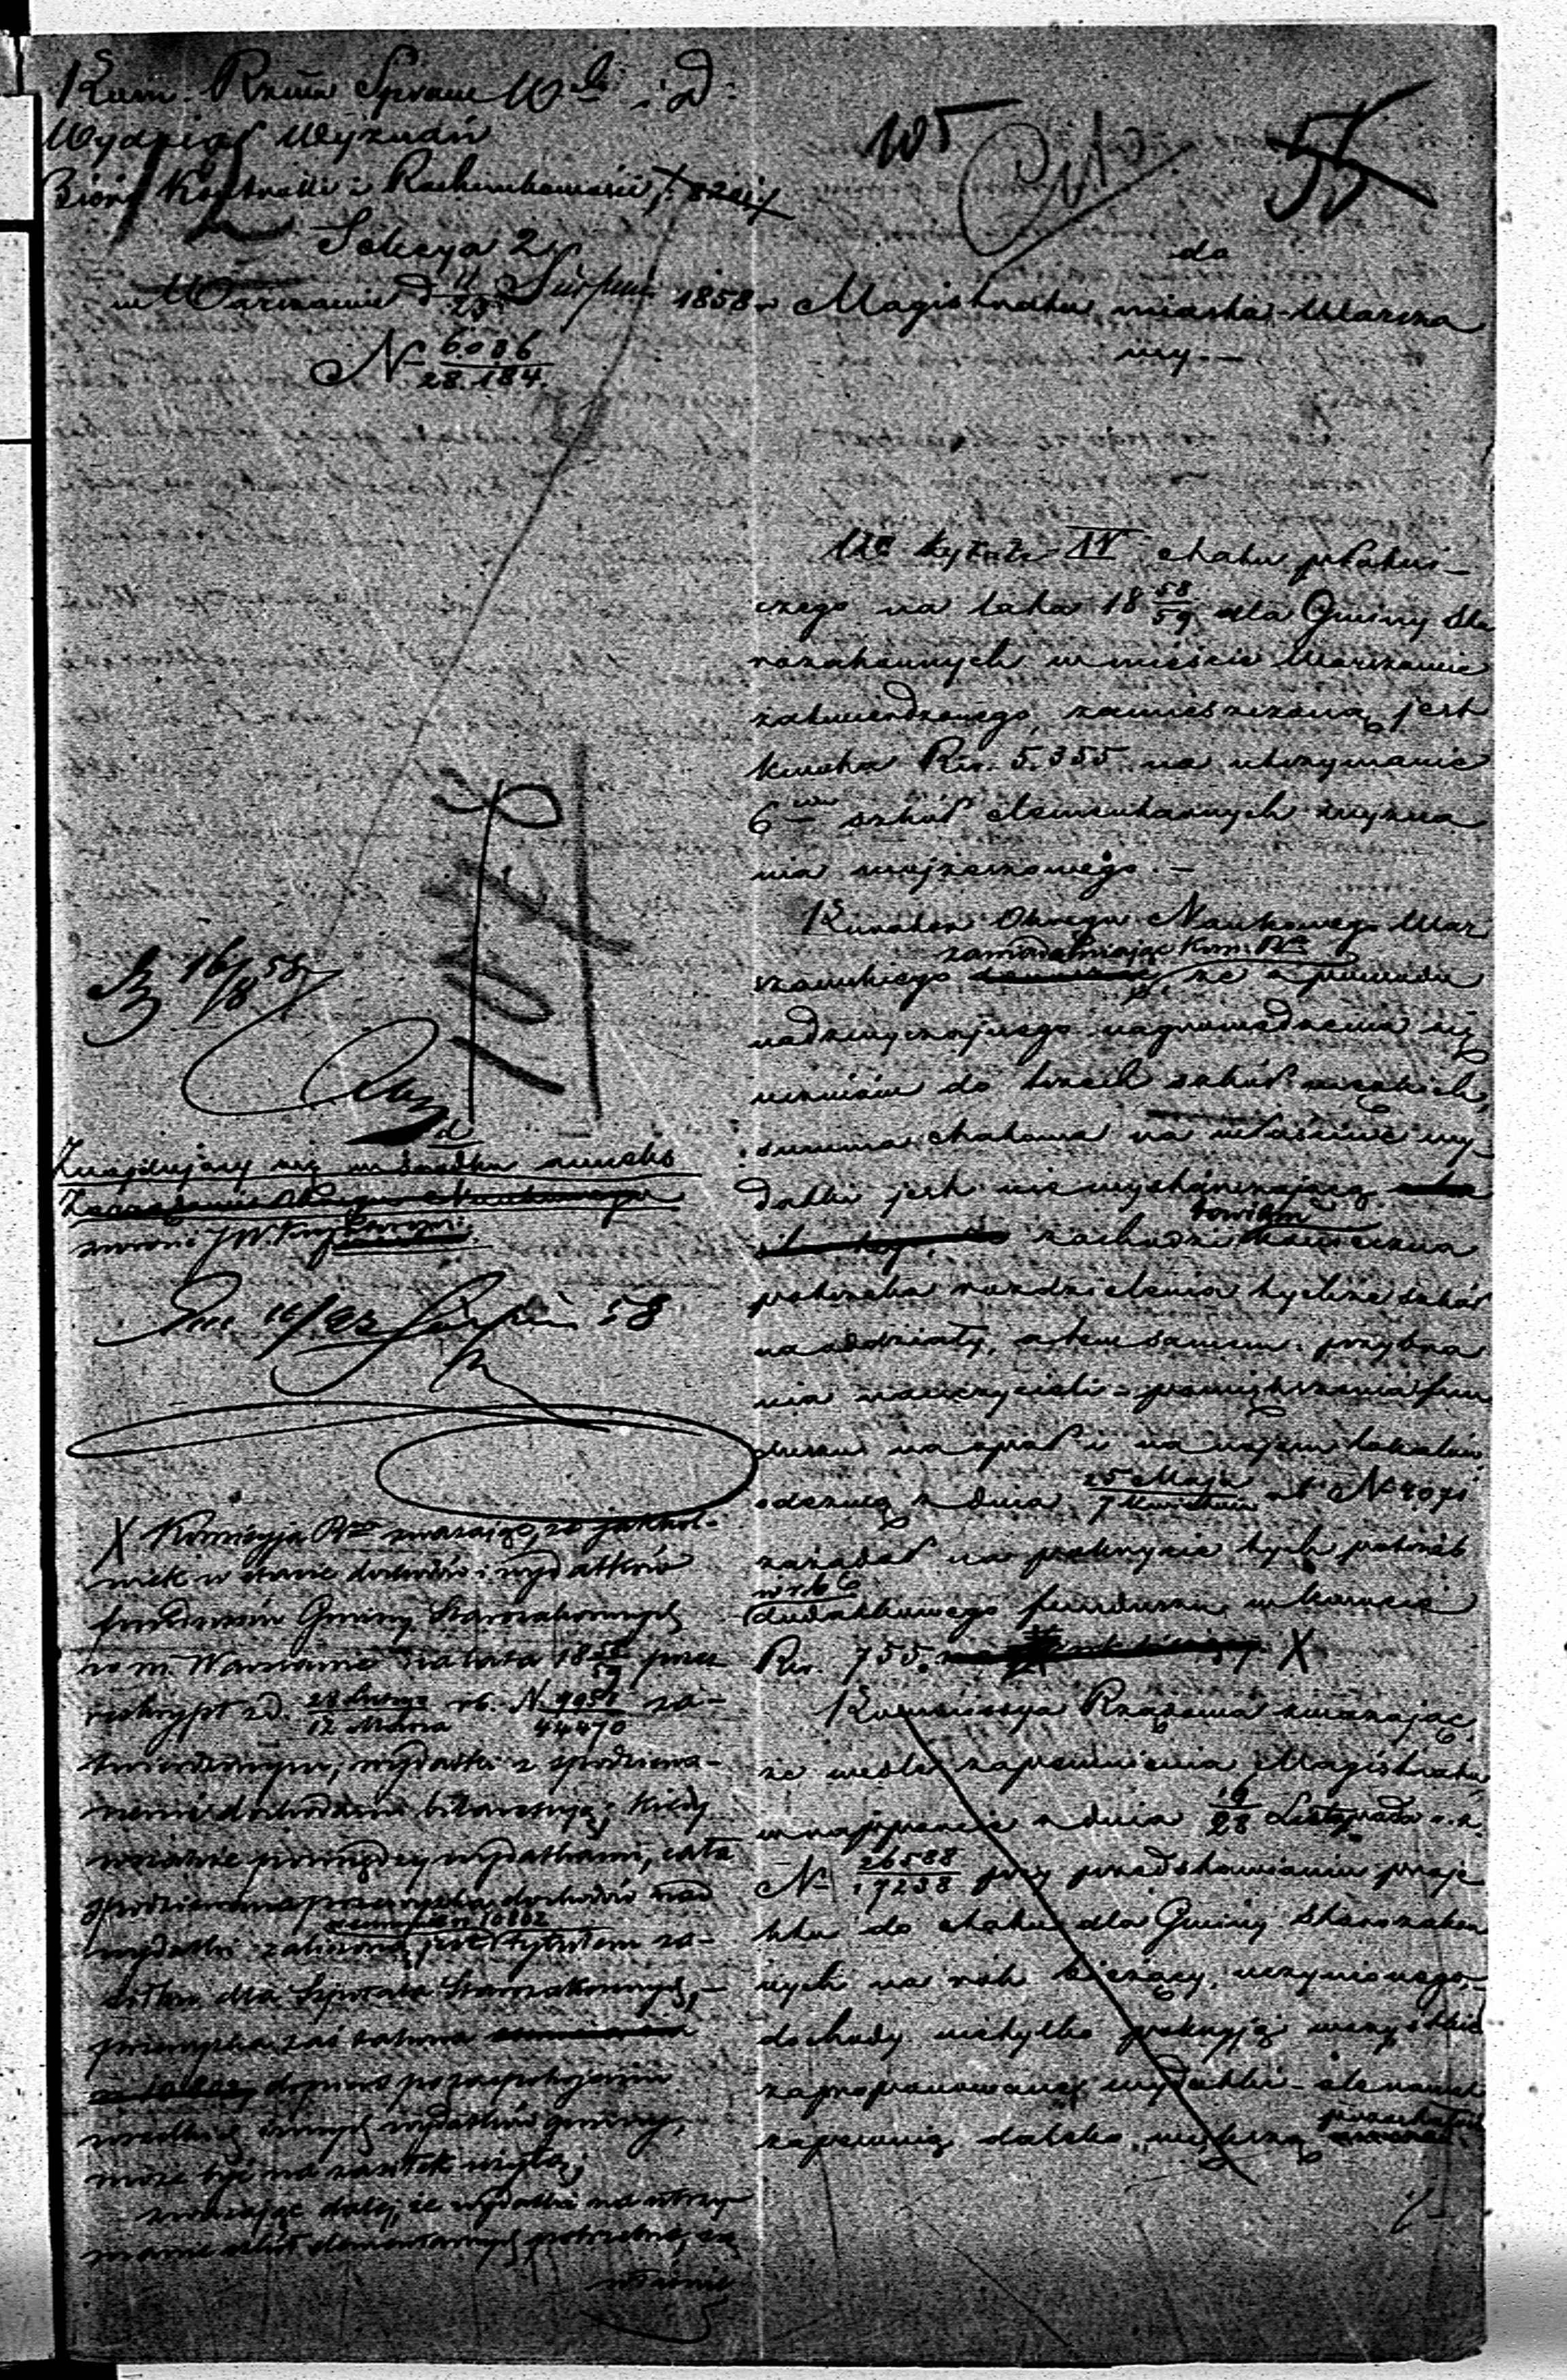 Kom. Rząa Spraw W. i D.
Wydział Wyznań
Bióro Kontrolli i Rachunkowości
Sekcya 2
w Warszawie d 11/23 Sierpnia 1858 r
N 6086/28.184
105
Cito
55
do
Magistratu miasta Warsza
wy. —
W tytule IV etatu
czego na lata 18 58/59 dla Gminy Sta
rozakonnych w mieście Warszawie
zatwierdzonego zamieszczona jest
kwota Rsr. 5,355 na utrzymanie
6 szkół elementarnych wyzna
nia mojżeszowego. —
Kurator Okręgu Naukowego War
zawiadamiając Kom. Rzą
szawskiego, że z powodu
nadzwyczajnego nagromadzenia się
uczniów do trzech szkół męzkich,
summa etatowa na właściwe wy-
datki jest niewystarczającą
bowiem
zachodzi konieczna
potrzeba rozdzielenia tychże szkół
na oddziały, a tem samem przybra
nia nauczycieli i powiększenia fun
duszu na opał i na najem lokalów
odezwą z dnia 25 Maja/7 Czerwca r b N 4071
zażądał na pokrycie tych potrzeb
dodatkowego funduszu w kwocie
Rsr. 755. X
Kommissya Rządowa zważając,
że wedle zapewnienia Magistratu
w rapporcie z dnia 16/28 Listopada r. z.
N 26588/17238 przy przedstawieniu proje
ktu do etatu dla Gminy Starozakon
nych na rok bieżący, uczynionego,
dochody nietylko pokryją wszystkie
zaproponowane wydatki ale nawet
zapewnią daleko większą przewyżkę
16/8 58
1078
Znajdujący się w środku
58
X Kommissyja Rzą zważając, że jakkol-
wiek w etacie dochodów i wydatków
funduszów Gminy Starozakonnych
w m. Warszawie na lata 18 58/59 przez
reskrypt z d. 28 Lutego/12 Marca rb. N 9958/44470 za-
twierdzonym, wydatki z spodziewa-
nemi dochodami bilansują; kiedy
wszakże pomiędzy wydatkami, cała
spodziewana przewyżka dochodów nad
w summie rs 10802
wydatki zaliczoną jest tytułem za-
siłku dla Szpitala Starozakonnych, —
przewyżka zaś takowa
dopiero po zaspokojeniu
wszelkich innych wydatków gminy,
może być na zasiłek użytą;
zważając dalej, że wydatki na utrzy-
manie szkół elementarnych potrzebne, są